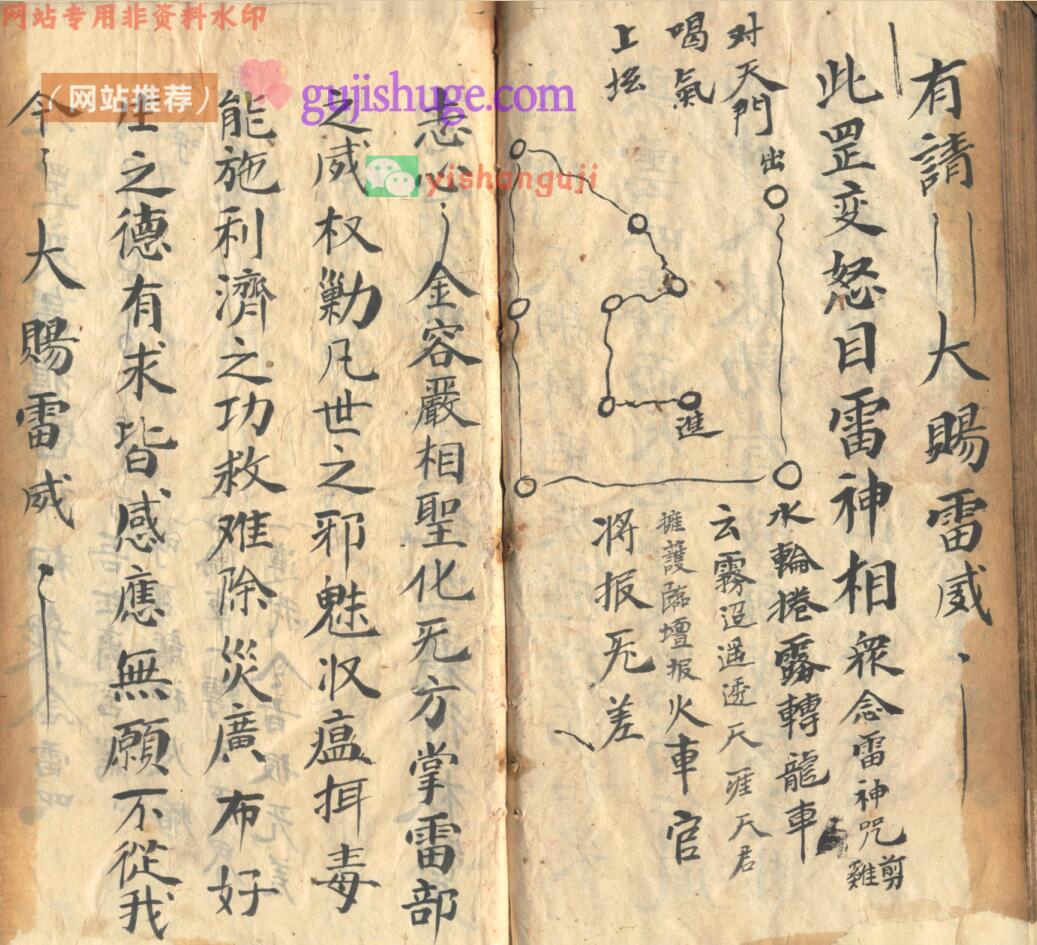 有請 大賜雷威
此罡变怒目雷神相众念雷神咒剪雞
对天門出
喝氣
上坛
進
水輪捲霧轉龍車
云霧迢遥透天涯天君
擁護臨壇报火車官
将报无差
志心 金容嚴相聖化无方掌雷部
之威权勦凡世之邪魅收瘟拜毒
能施利濟之功救难除災廣布好
生之德有求皆感應無願不從我
今 大賜雷威
网站专用非资料水印
（网站推荐）
gujishuge.com
yishanguji